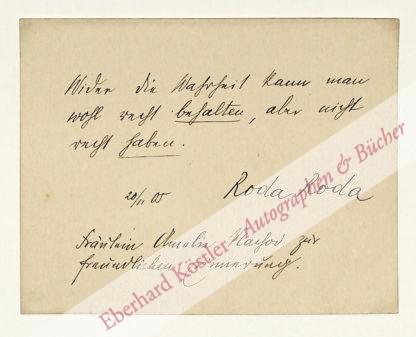 Wider die Wahrheit kann man
wohl recht behalten, aber nicht
recht haben.
20/11 00 Roda Roda
Fräulein Amelie zur
freundlichen Erinnerung.
Eberhard Köstler Autographen & Bücher